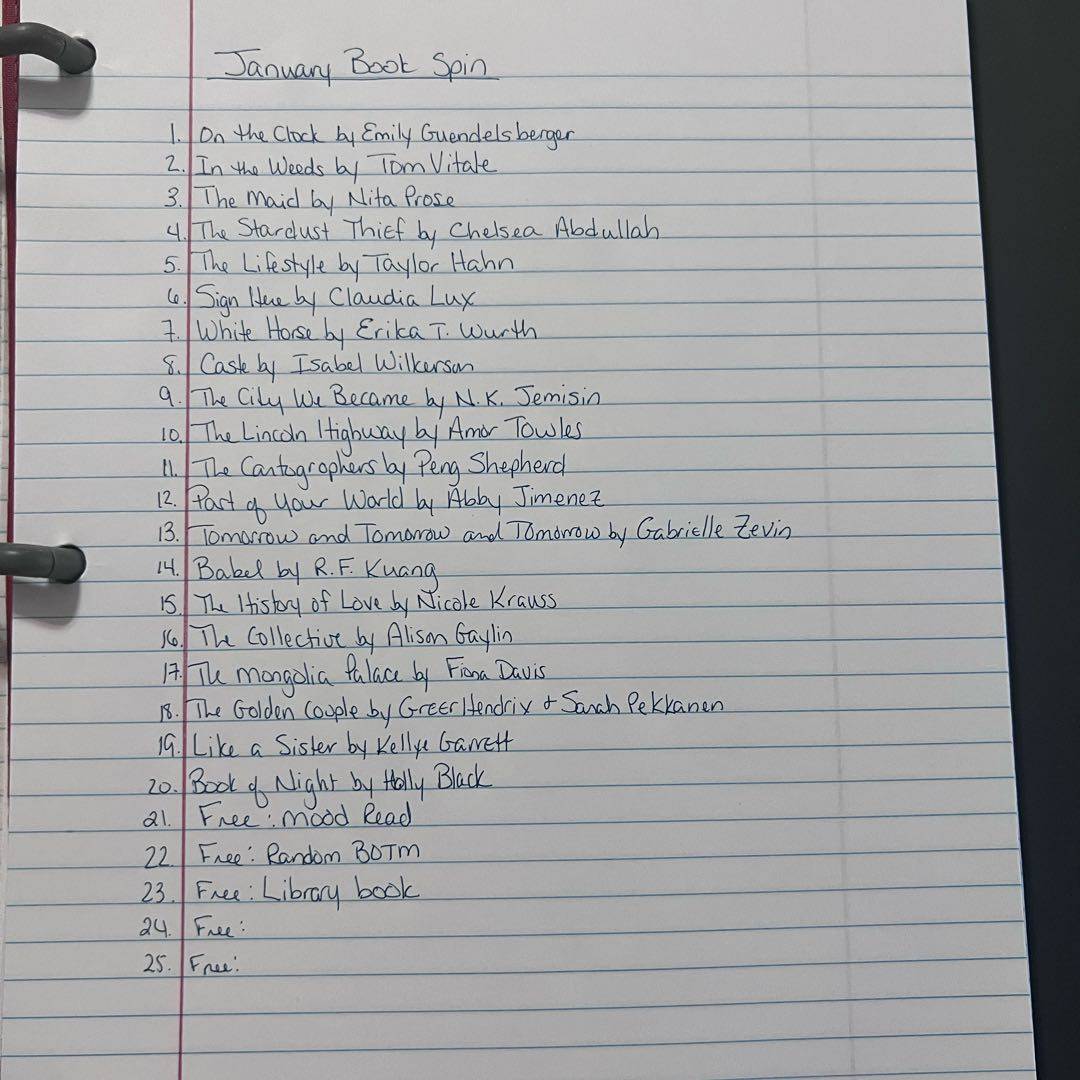 January Book Spin
1. On the Clock by Emily Guendelsberger
2. In the Weeds by Tom Vitale
3. The Maid by Nita Prose
4. The Stardust Thief by Chelsea Abdullah
5. The Lifestyle by Taylor Hahn
6. Sign Here by Claudia Lux
7. White Horse by Erika T. Wurth
8. Caste by Isabel Wilkerson
9. The City We Became by N.K. Jemisin
10. The Lincoln Highway by Amor Towles
11. The Cartographers by Peng Shepherd
12. Part of Your World by Abby Jimenez
13. Tomorrow and Tomorrow and Tomorrow by Gabrielle Zevin
14. Babel by R.F. Kuang
15. The History of Love by Nicole Krauss
16. The Collective by Alison Gaylin
17. The Mongolia Palace by Fiona Davis
18. The Golden Couple by Greer Hendrix & Sarah Pekkanen
19. Like a Sister by Kellye Garrett
20. Book of Night by Holly Black
21. Free: Mood Read
22. Free: Random BOTM
23. Free: Library book
24. Free:
25. Free: